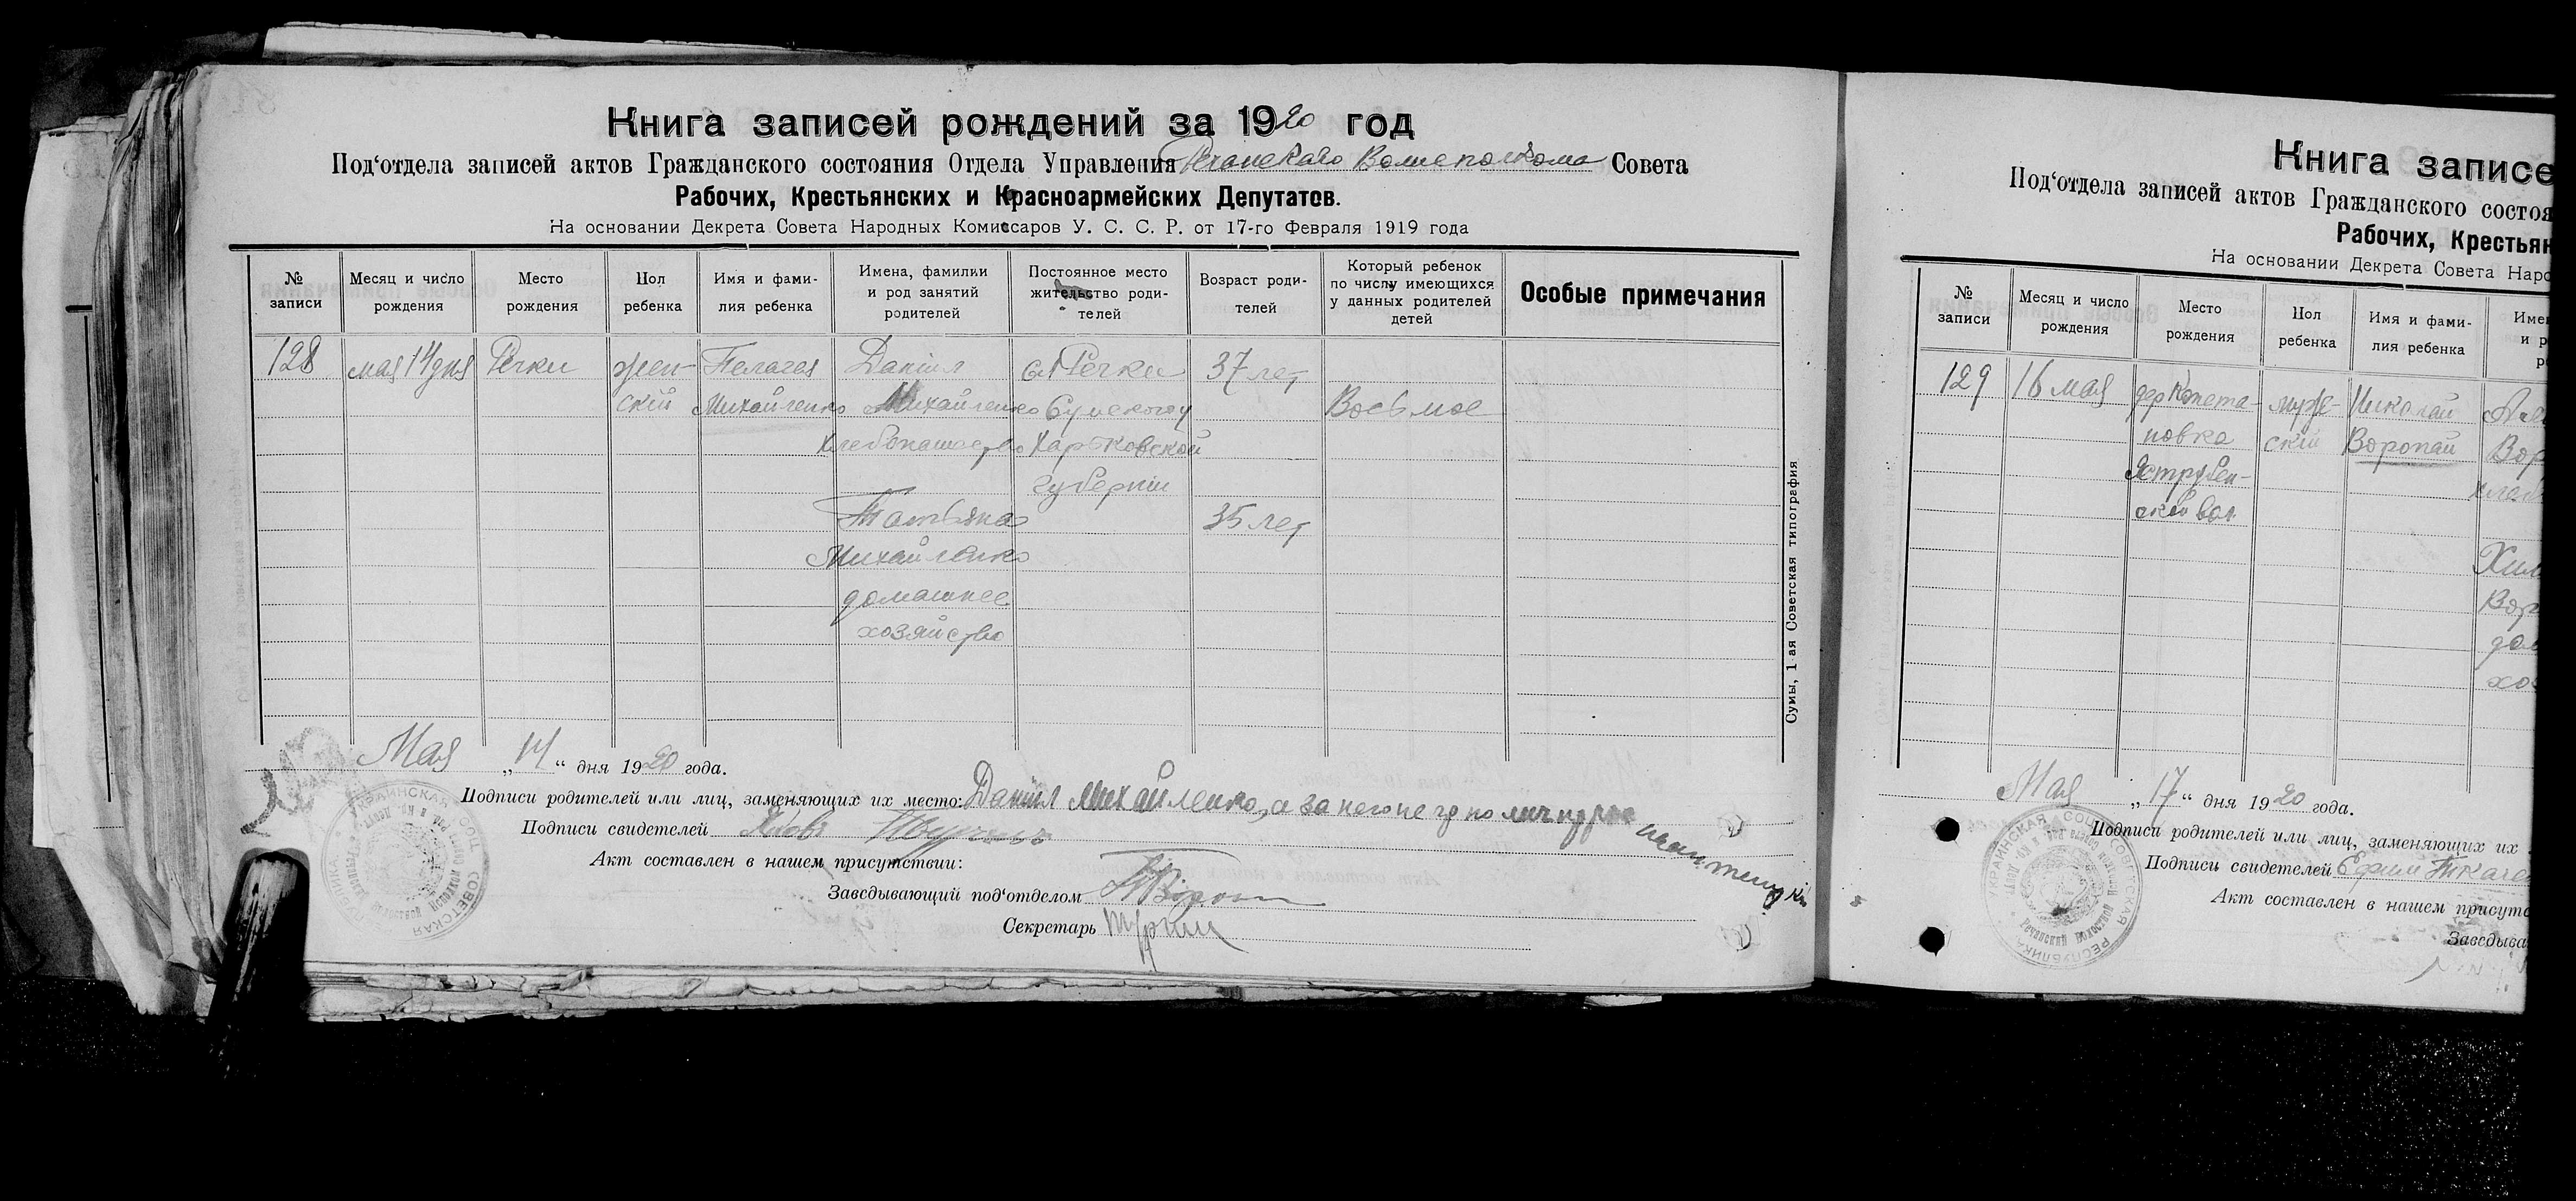 Книга записей рождений за 1920 год
Под‘отдела записей актов Гражданского состояния Отдела Управления Речанскаго Волисполкома Совета
Рабочих, Крестьянских и Красноармейских Депутатов.
На основании Декрета Совета Народных Комиссаров У. С. С. Р. от 17-го Февраля 1919 года
№ записи
Месяц и число рождения
Место рождения
Пол ребенка
Имя и фами-
лия ребенка
Имена, фамилии
и род занятий
родителей
Постоянное место
жительство роди-
телей
Возраст роди-
телей
Который ребенок
по числу имеющихся
у данных родителей
детей
Особые примечания
128
мая 14 дня
Речки
жен-
скій
Пелагея
Михайленко
Даніил
Михайленко
хлебопашество
Татьяна
Михайленко
домашнее
хозяйство
с. Речки
Сумского у
Харьковской
губернии
37 лет
35 лет
Восьмое
Сумы, 1-ая Советская типография
Мая „14“ дня 1920 года.
Подписи родителей или лиц, заменяющих их место: Даніил Михайленко, а за него не
Подписи свидетелей Яковъ
Акт составлен в нашем присутствии:
Заведывающий под‘отделом
Секретарь
УКРАИНСКАЯ СОЦ. СОВЕТСКАЯ РЕСПУБЛИКА
Книга записе
Под‘отдела записей актов Гражданского состоя
Рабочих, Крестьян
На основании Декрета Совета Наро
№ записи
Месяц и число
рождения
Место
рождения
Пол
ребенка
Имя и фами-
лия ребенка
Име
и р
р
129
16 мая
дер
новка
Яструбен-
ской вол
муже-
скій
Николай
Воропай
Вор
хлеб
Вор
дом
хоз
Мая „17“ дня 1920 года.
Подписи родителей или лиц, заменяющих их
Подписи свидетелей Ефим Ткаче
Акт составлен в нашем присутс
Заведыва
УКРАИНСКАЯ СОЦ. СОВЕТСКАЯ РЕСПУБЛИКА
Речанский Волостной